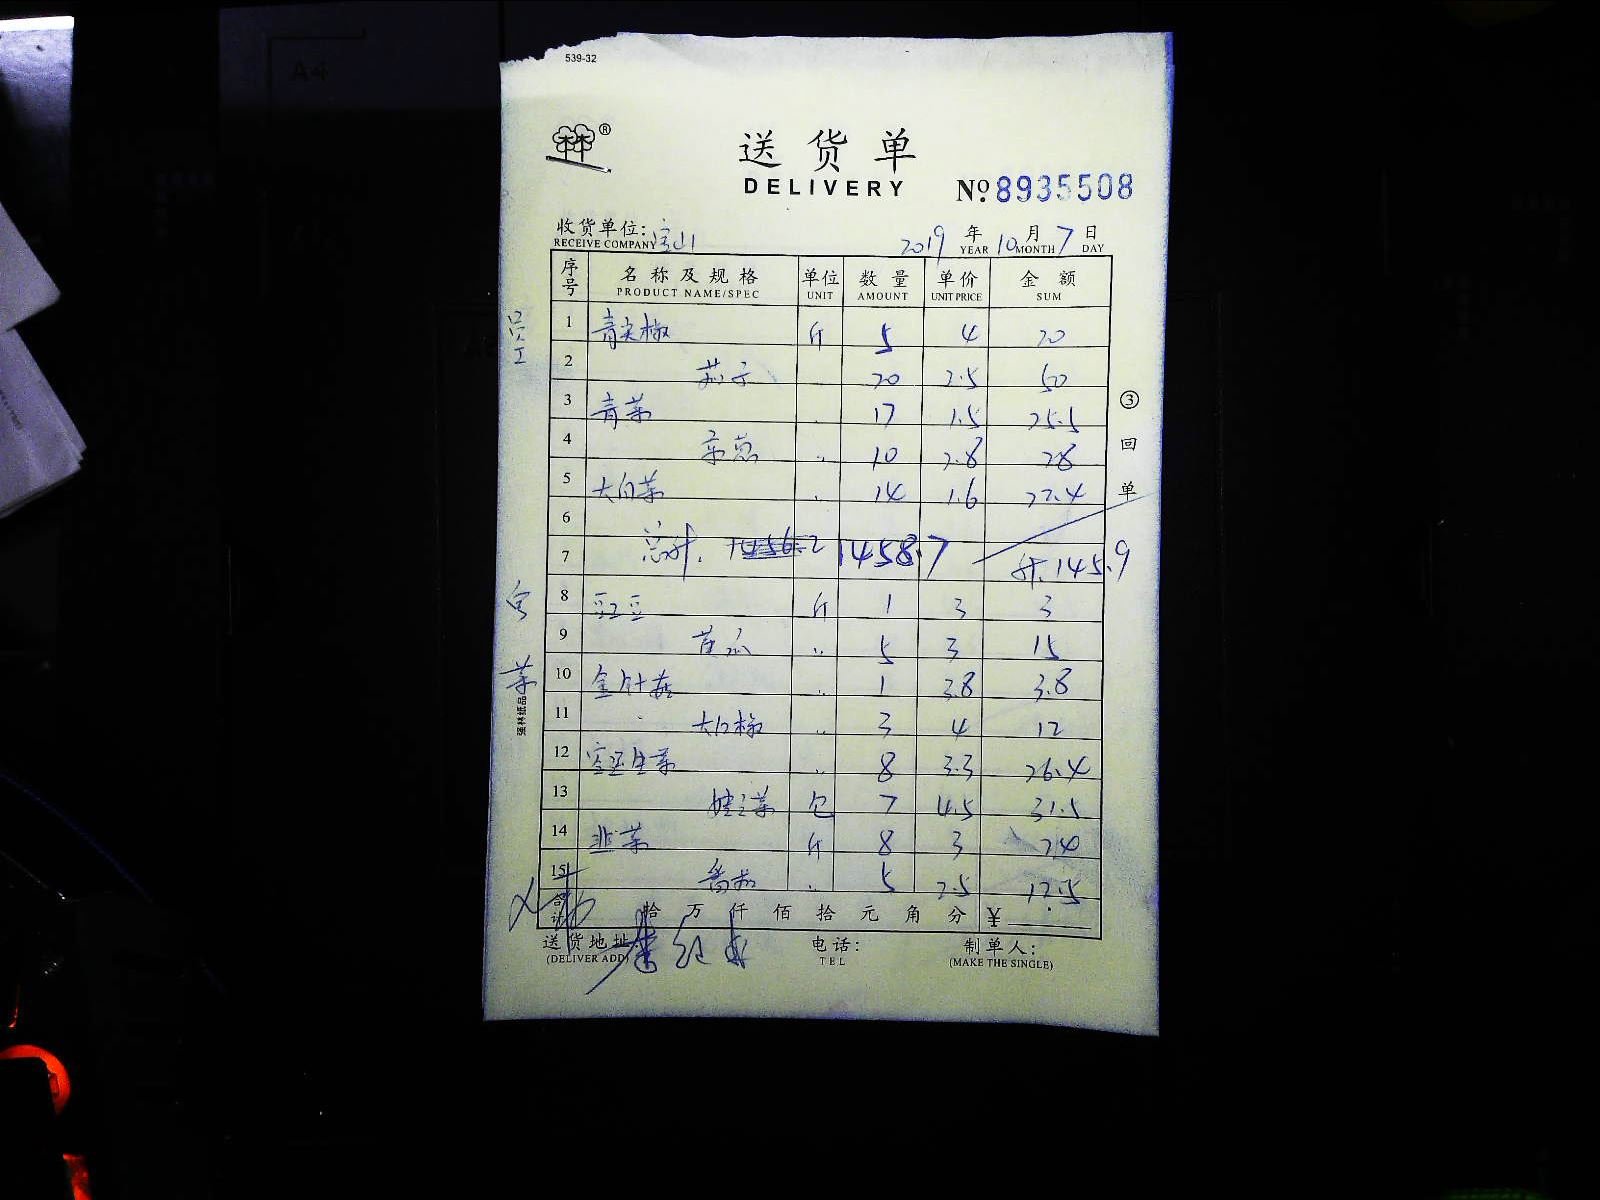 539-32
®
送货单
DELIVERY
№ 8935508
收货单位: 宝山 2019 年 10 月 7 日
RECEIVE COMPANY YEAR MONTH DAY
序号 名称及规格 单位 数量 单价 金额
PRODUCT NAME/SPEC UNIT AMOUNT UNIT PRICE SUM
员工
1 青尖椒 斤 5 4 20
2 茄子 20 2.5 50
3 青菜 〃 17 1.5 25.5
4 〃 10 2.8 28
5 大白菜 〃 14 1.6 22.4
6
7 总计. 1458.7 计.145.9
客菜
8 豇豆 斤 1 3 3
9 黄瓜 〃 5 3 15
10 金针菇 〃 1 3.8 3.8
11 大红椒 〃 3 4 12
12 生菜 〃 8 3.3 26.4
13 娃娃菜 包 7 4.5 31.5
14 韭菜 斤 8 3 24
15 番茄 〃 5 2.5 12.5
合计 拾 万 仟 佰 拾 元 角 分 ¥
送货地址: 电话: 制单人:
(DELIVER ADD) TEL (MAKE THE SINGLE)
③回单
强林纸品